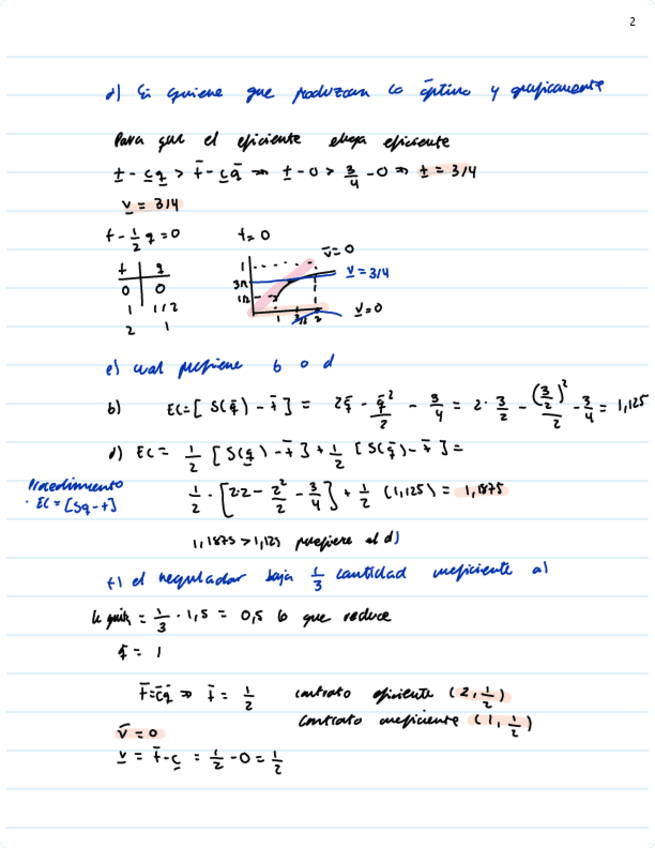 2
d) Si quiere que produzcan lo óptimo y graficamente
Para que el eficiente elija eficiente
t̲ - c̲q̲ > t̄ - c̲q̄ ⇒ t̲ - 0 > 3/4 - 0 ⇒ t̲ = 3/4
v̲ = 3/4
t - 1/2 q = 0 t = 0
t | q
0 | 0
1 | 1/2
2 | 1
1
v̄ = 0
v̲ = 3/4
v̲ = 0
1 3/2 2
e) cual prefiere b o d
b) EC = [S(q̄) - t̄] = 2q̄ - q̄²/2 - 3/4 = 2 · 3/2 - (3/2)²/2 - 3/4 = 1,125
d) EC = 1/2 [S(q̲) - t̄] + 1/2 [S(q̄) - t̄] =
Procedimiento
· EC = [Sq - t]
1/2 · [2·2 - 2²/2 - 3/4] + 1/2 (1,125) = 1,1875
1,1875 > 1,125 prefiere el d)
f) el regulador baja 1/3 cantidad ineficiente a)
le quita = 1/3 · 1,5 = 0,5 lo que reduce
q̄ = 1
t̄ = c̄q̄ ⇒ t̄ = 1/2 contrato eficiente (2, 1/2)
contrato ineficiente (1, 1/2)
v̄ = 0
v̲ = t̄ - c̲ = 1/2 - 0 = 1/2